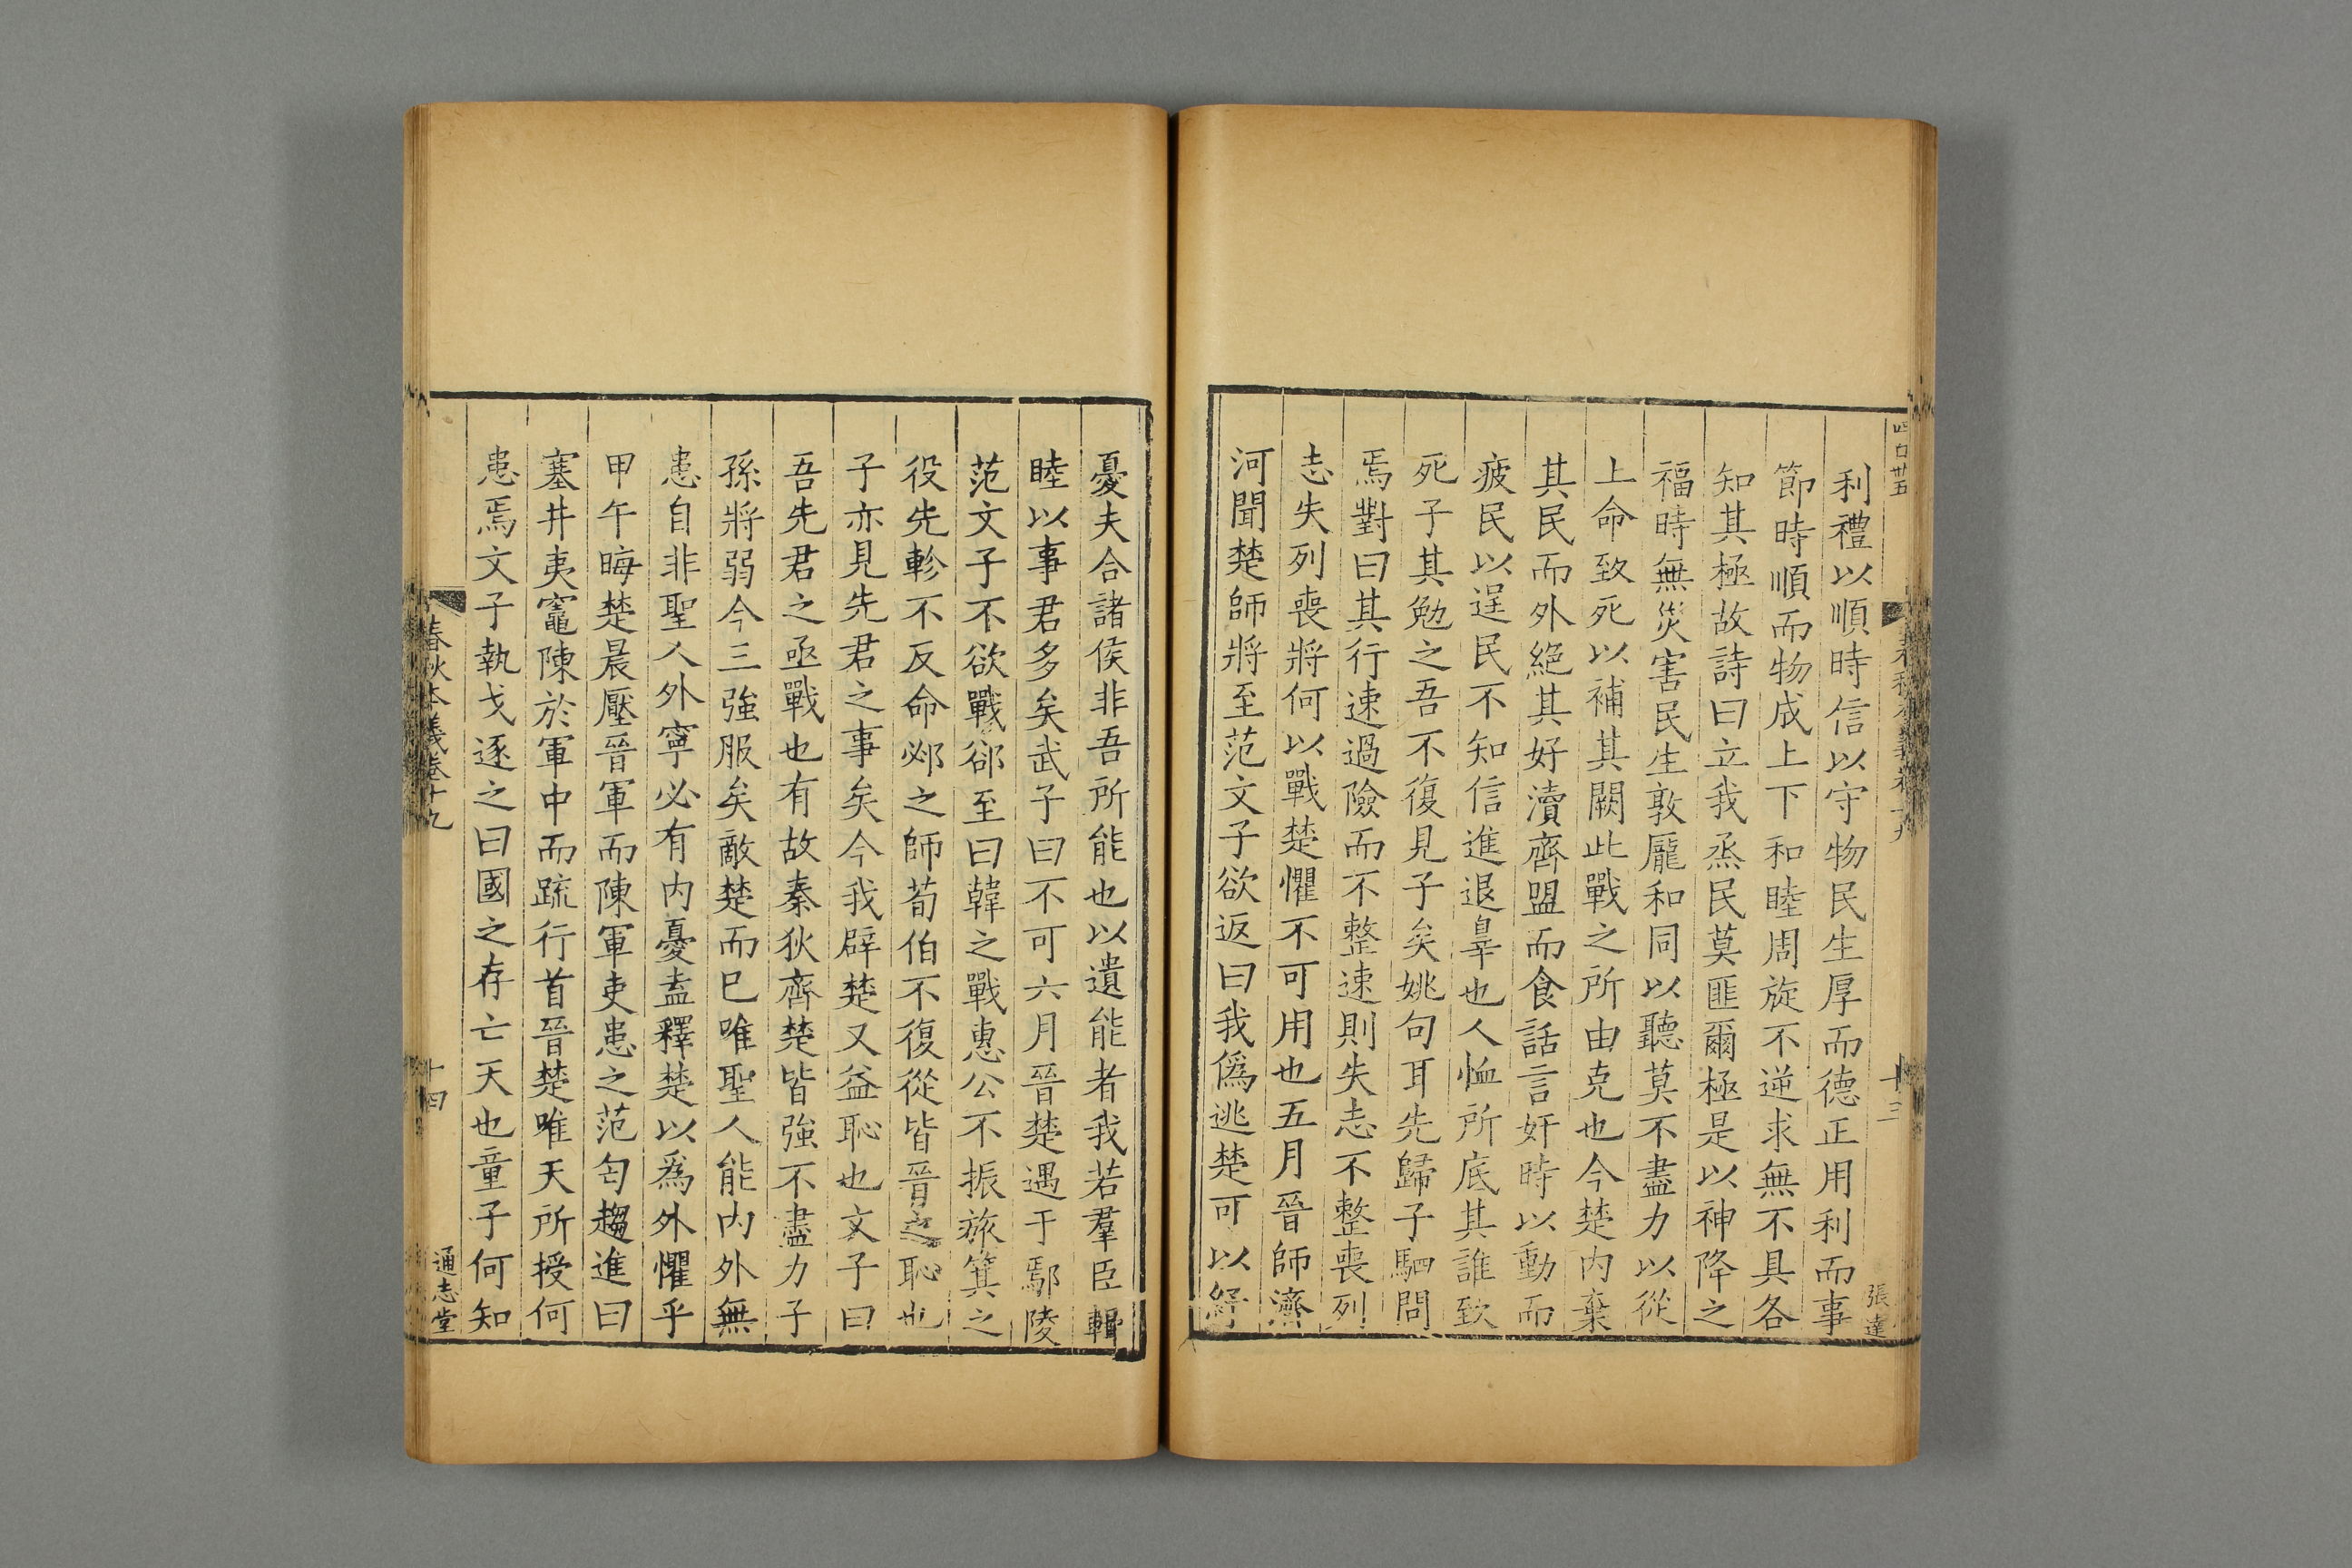 四百廿五
春秋本義卷十九
十三
張達
利禮以順時信以守物民生厚而德正用利而事
節時順而物成上下和睦周旋不逆求無不具各
知其極故詩曰立我烝民莫匪爾極是以神降之
福時無災害民生敦厖和同以聽莫不盡力以從
上命致死以補其闕此戰之所由克也今楚内棄
其民而外絕其好瀆齊盟而食話言奸時以動而
疲民以逞民不知信進退辠也人恤所底其誰致
死子其勉之吾不復見子矣姚句耳先歸子駟問
焉對曰其行速過險而不整速則失志不整喪列
志失列喪將何以戰楚懼不可用也五月晉師濟
河聞楚師將至范文子欲返曰我僞逃楚可以紓
憂夫合諸侯非吾所能也以遺能者我若羣臣輯
睦以事君多矣武子曰不可六月晉楚遇于鄢陵
范文子不欲戰郤至曰韓之戰惠公不振旅箕之
役先軫不反命邲之師荀伯不復從皆晉之恥也
子亦見先君之事矣今我辟楚又益恥也文子曰
吾先君之亟戰也有故秦狄齊楚皆強不盡力子
孫將弱今三強服矣敵楚而已唯聖人能内外無
患自非聖人外寧必有内憂盍釋楚以爲外懼乎
甲午晦楚晨壓晉軍而陳軍吏患之范匄趨進曰
塞井夷竈陳於軍中而疏行首晉楚唯天所授何
患焉文子執戈逐之曰國之存亡天也童子何知
春秋本義卷十九
十四
通志堂